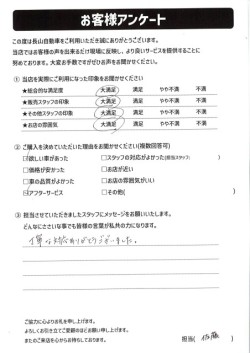 お客様アンケート
この度は長山自動車をご利用いただき誠にありがとうございます。
当店ではお客様の声を出来るだけ現場に反映し、より良いサービスを提供することに
努めております。大変お手数ですがぜひお声をお聞かせください。
① 当店を実際にご利用になった印象をお聞かせください
★総合的な満足度 大満足 満足 やや不満 不満
★販売スタッフの印象 大満足 満足 やや不満 不満
★その他スタッフの印象 大満足 満足 やや不満 不満
★お店の雰囲気 大満足 満足 やや不満 不満
② ご購入を決めていただいた理由をお聞かせください(複数回答可)
□欲しい車があった □スタッフの対応がよかった(担当スタッフ: )
□価格が安かった □お店が近い
□車の品質がよかった □お店の雰囲気がいい
☑アフターサービス □その他( )
③ 担当させていただきましたスタッフにメッセージをお願いいたします。
どんなにささいな事でも皆様の言葉が私共の力になります。
丁寧な対応ありがとうございました。
ご協力に心よりお礼を申し上げます。
よろしくお引き立てご愛顧のほどお願い申し上げます。
またのご来店を心からお待ちしております。
担当( 佐藤 )